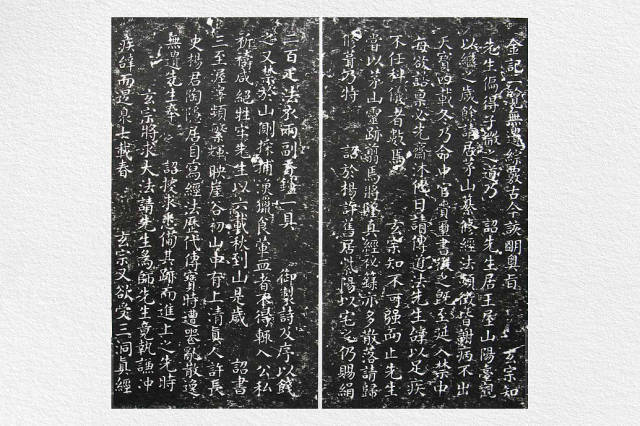 金記一覽無遺經數古今該明奧旨 玄宗知
先生偏得子微之道乃 詔先生居王屋山陽臺觀
以繼之歲餘請居茅山纂修經法頻徵皆謝病不出
天寶四載冬乃命中官賫璽書徵之既至延入禁中
每欲諮稟必先齋沐他日請傳道法先生辭以足疾
不任科儀者數焉 玄宗知不可強而止先生
嘗以茅山靈跡翦焉將墜真經秘籙亦多散落請歸
修葺乃特 詔於楊許舊居紫陽以宅之仍賜絹
二百疋法衣兩副香鑪一具 御製詩及序以餞
之又禁於山側採捕漁獵食葷血者不得輒入公私
祈禱咸絕牲牢先生以六載秋到山是歲 詔書
三至渥澤頻繁輝映崖谷初山中有上清真人許長
史楊君陶隱居自寫經法歷代傳寶時遭喪亂散逸
無遺先生奉 詔搜求悉備其跡而進上之先時
玄宗將求大法請先生為師先生竟執謙沖
疾辭而退 七載春 玄宗又欲受三洞真經